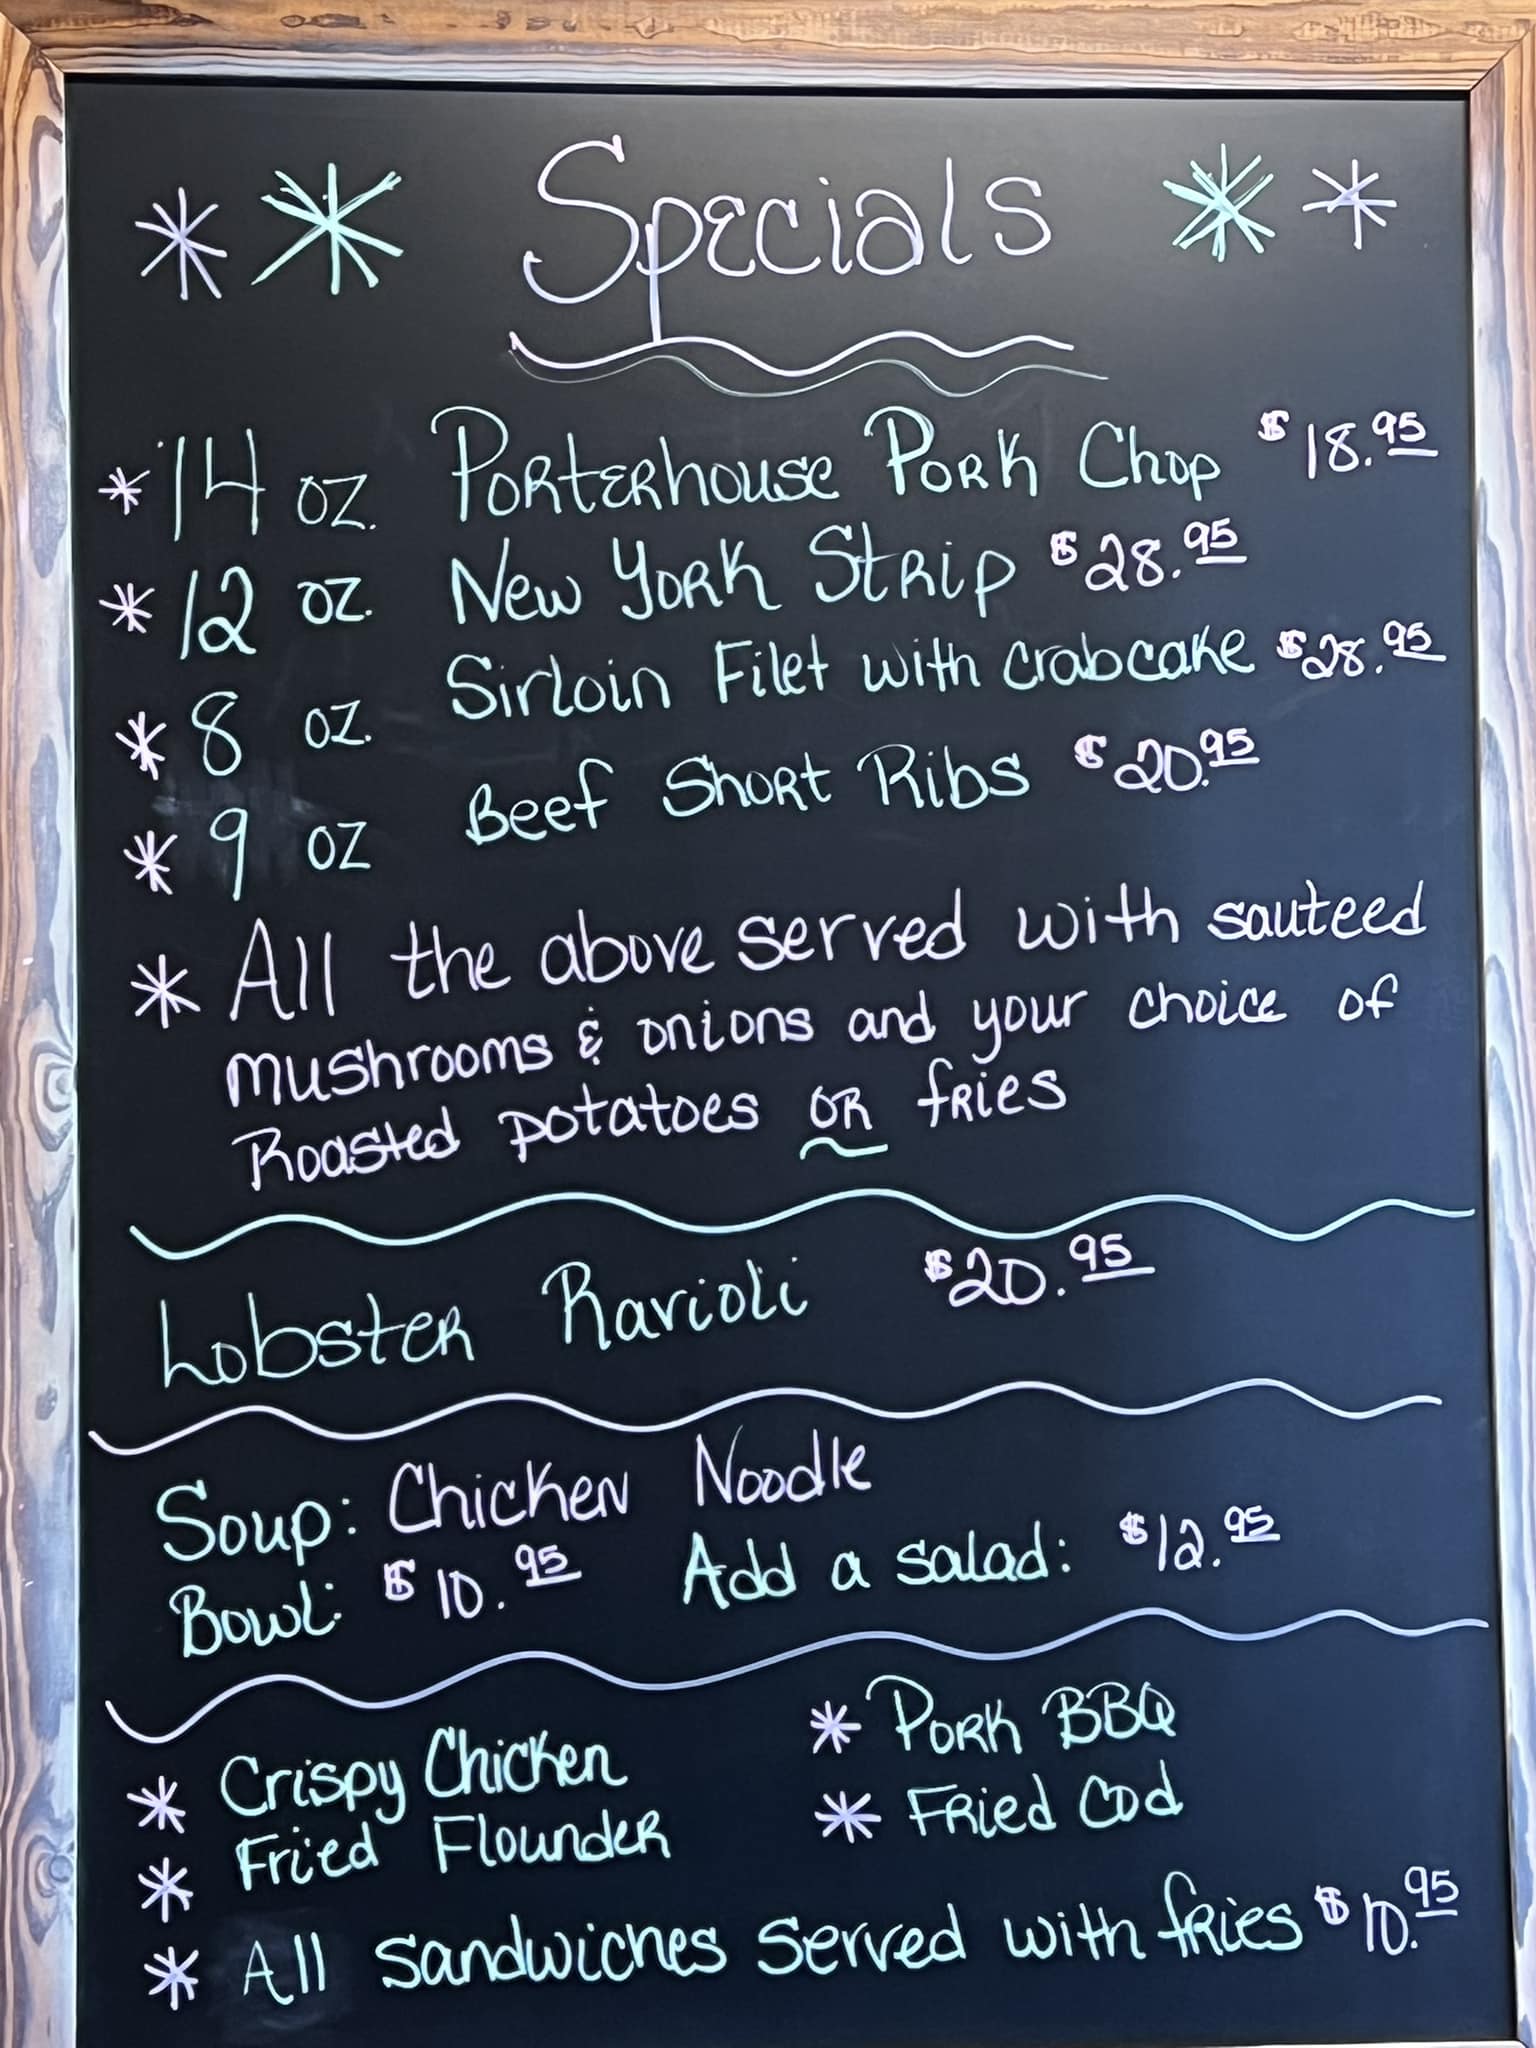 Specials
* 14 oz. Porterhouse Pork Chop $18.95
* 12 oz. New York Strip $28.95
* 8 oz. Sirloin Filet with crabcake $28.95
* 9 oz Beef Short Ribs $20.95
* All the above served with sauteed
mushrooms & onions and your choice of
Roasted potatoes OR fries
Lobster Ravioli $20.95
Soup: Chicken Noodle
Bowl: $10.95 Add a salad: $12.95
* Crispy Chicken * Pork BBQ
* Fried Flounder * Fried Cod
* All sandwiches served with fries $10.95